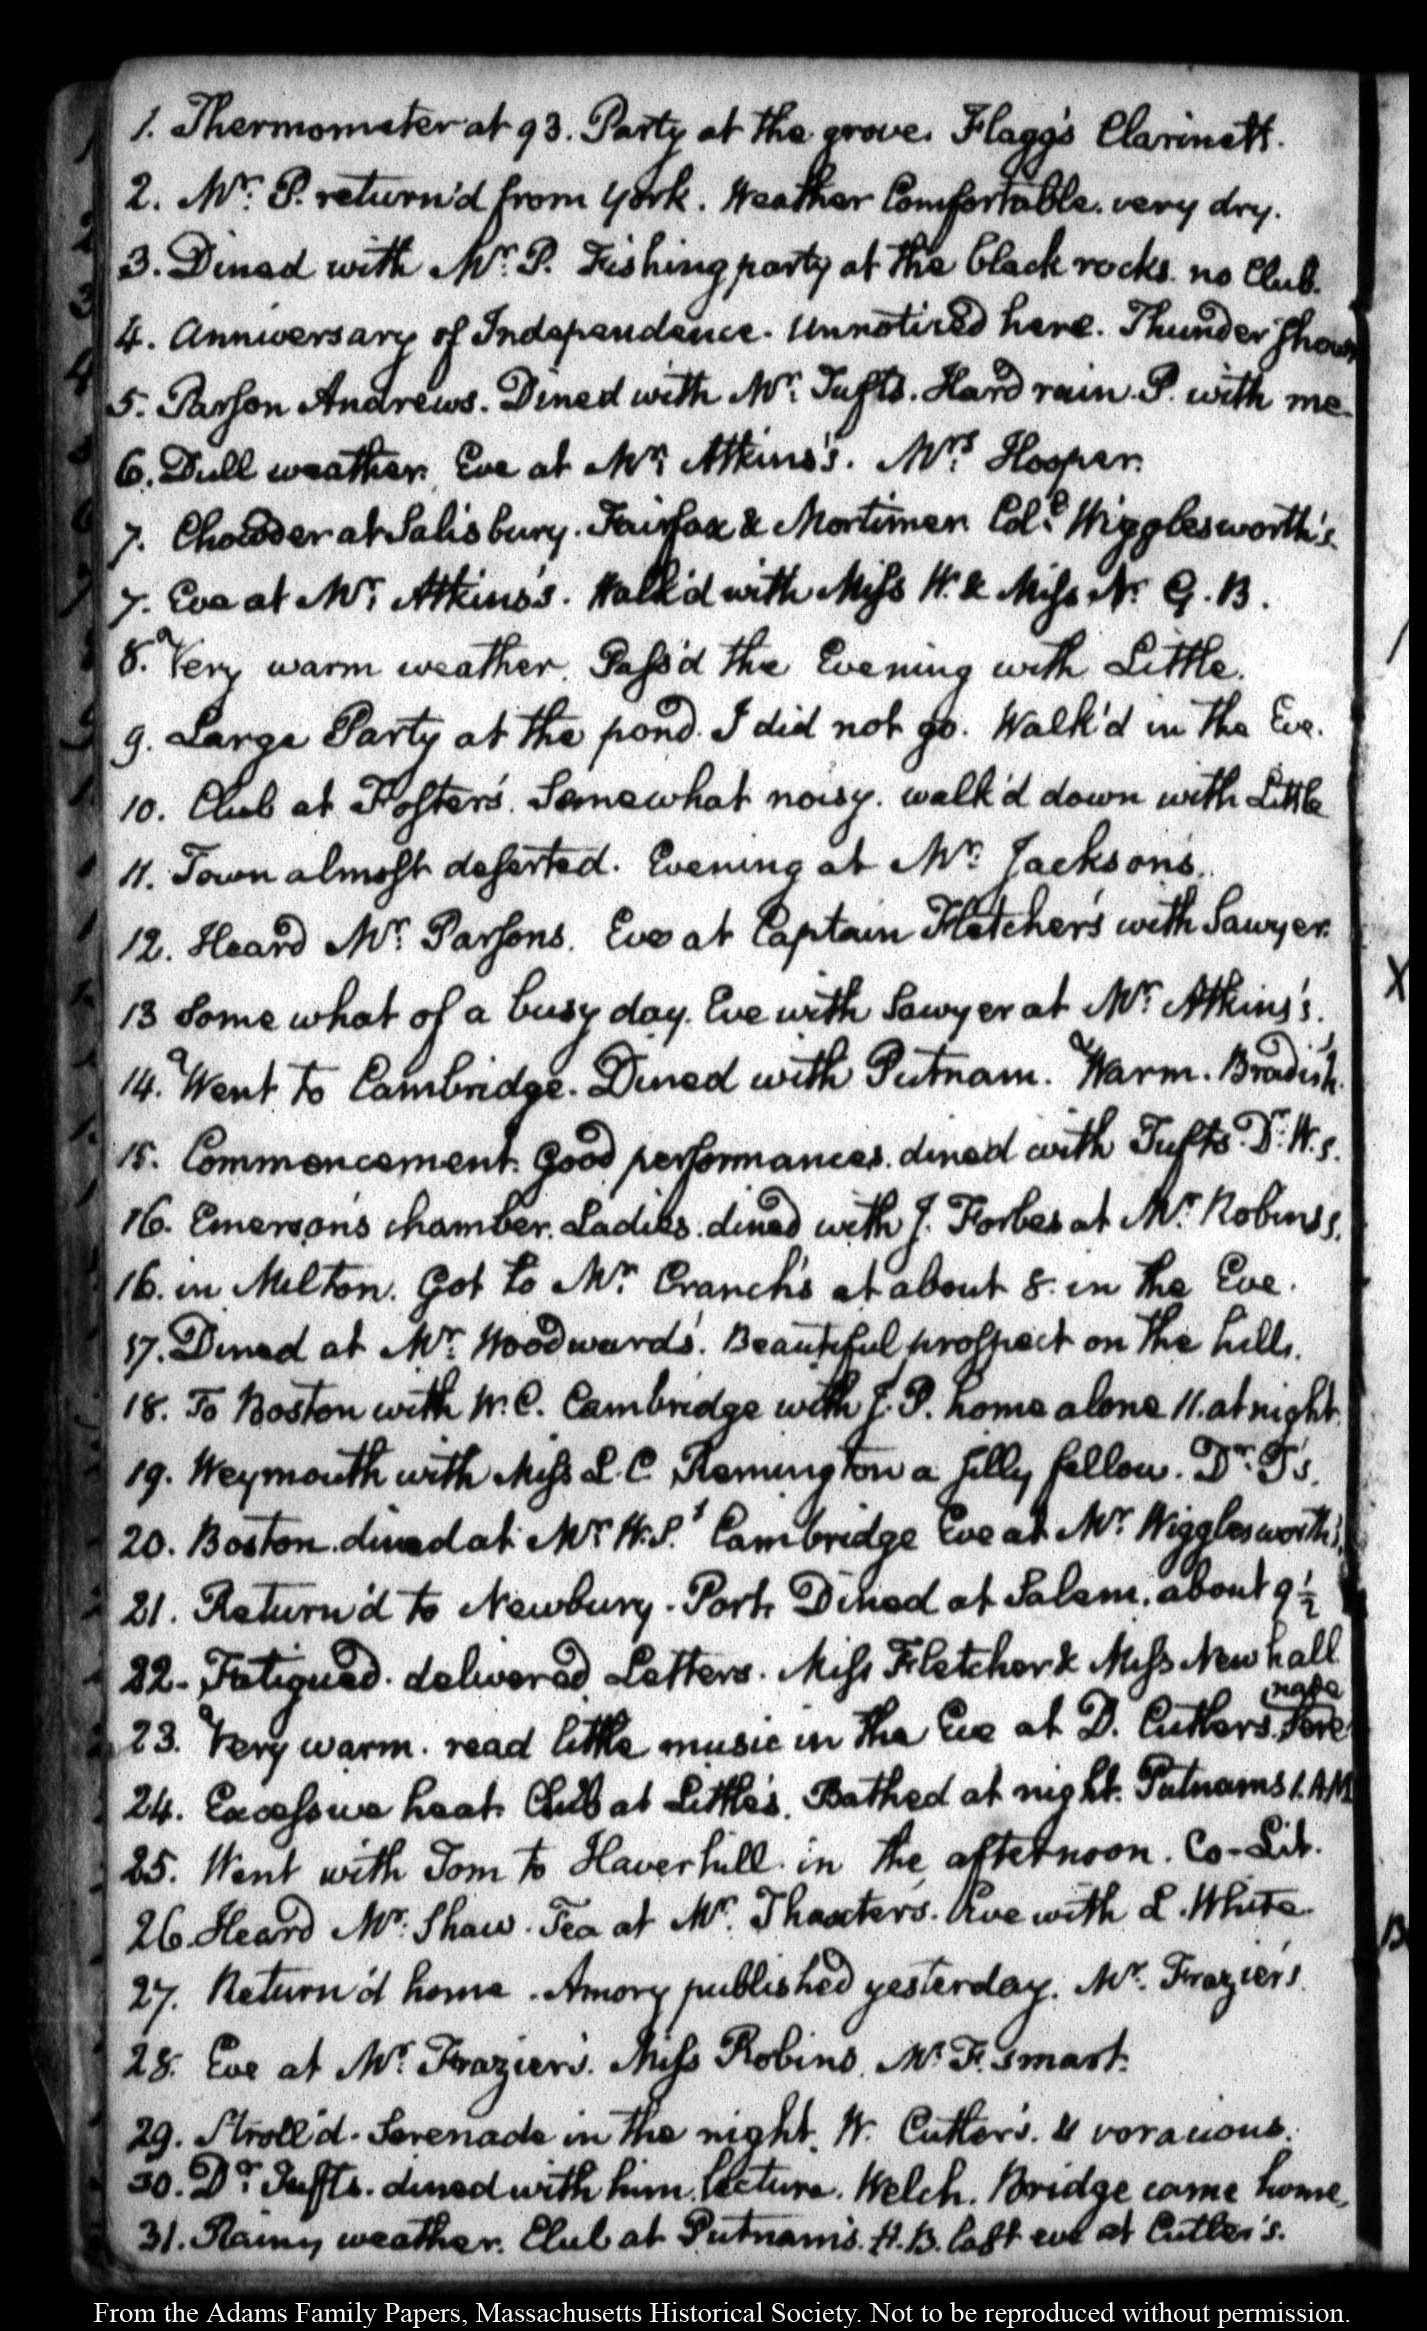 1. Thermometer at 93. Party at the grove. Flagg's Clarinett.
2. Mr. P. return'd from York. Weather Comfortable. very dry.
3. Dined with Mr. P. Fishing party at the black rocks. no Club.
4. Anniversary of Independence. Unnoticed here. Thunder Shower
5. Parson Andrews. Dined with Mr. Tufts. Hard rain. P. with me.
6. Dull weather. Eve at Mrs. Atkins's. Mrs. Hooper.
7. Chowder at Salisbury. Fairfax & Mortimer. Colo. Wigglesworth's.
7. Eve at Mr. Atkins's. Walk'd with Miss W. & Miss N. G. B.
8. Very warm weather. Pass'd the Evening with Little.
9. Large Party at the pond. I did not go. Walk'd in the Eve.
10. Club at Foster's. Somewhat noisy. walk'd down with Little
11. Town almost deserted. Evening at Mr. Jackson's.
12. Heard Mr. Parsons. Eve at Captain Fletcher's with Sawyer.
13 Somewhat of a busy day. Eve with Sawyer at Mr. Atkins's.
14. Went to Cambridge. Dined with Putnam. Warm. Bradish.
15. Commencement. Good performances. dined with Tufts. Dr. W.s.
16. Emerson's chamber. Ladies. dined with J. Forbes at Mr. Robins's.
16. in Milton. Got to Mr. Cranch's at about 8. in the Eve.
17. Dined at Mr. Woodward's. Beautiful prospect on the hills.
18. To Boston with W. C. Cambridge with J. P. home alone 11. at night.
19. Weymouth with Miss L. C. Remington a silly fellow. Dr. T's.
20. Boston. dined at Mr. W. S.'s Cambridge Eve at Mr. Wigglesworth's.
21. Return'd to Newbury-Port. Dined at Salem. about 9 1/2
22. Fatigued. delivered Letters. Miss Fletcher & Miss Newhall
23. Very warm. read little music in the Eve at D. Cutler's. Sere
nade
24. Excessive heat. Club at Little's. Bathed at night. Putnam's 1. A M
25. Went with Tom to Haverhill. in the afternoon. Co-Lit.
26. Heard Mr. Shaw. Tea at Mr. Thaxter's. Eve with L. White.
27. Return'd home. Amory published yesterday. Mr. Frazier's.
28. Eve at Mr. Frazier's. Miss Robins. Mr. F. smart.
29. Stroll'd. Serenade in the night. W. Cutler's. voracious.
30. Dr. Tufts. dined with him. lecture. Welch. Bridge came home.
31. Rainy weather. Club at Putnam's. H. B. last eve at Cutler's.
From the Adams Family Papers, Massachusetts Historical Society. Not to be reproduced without permission.